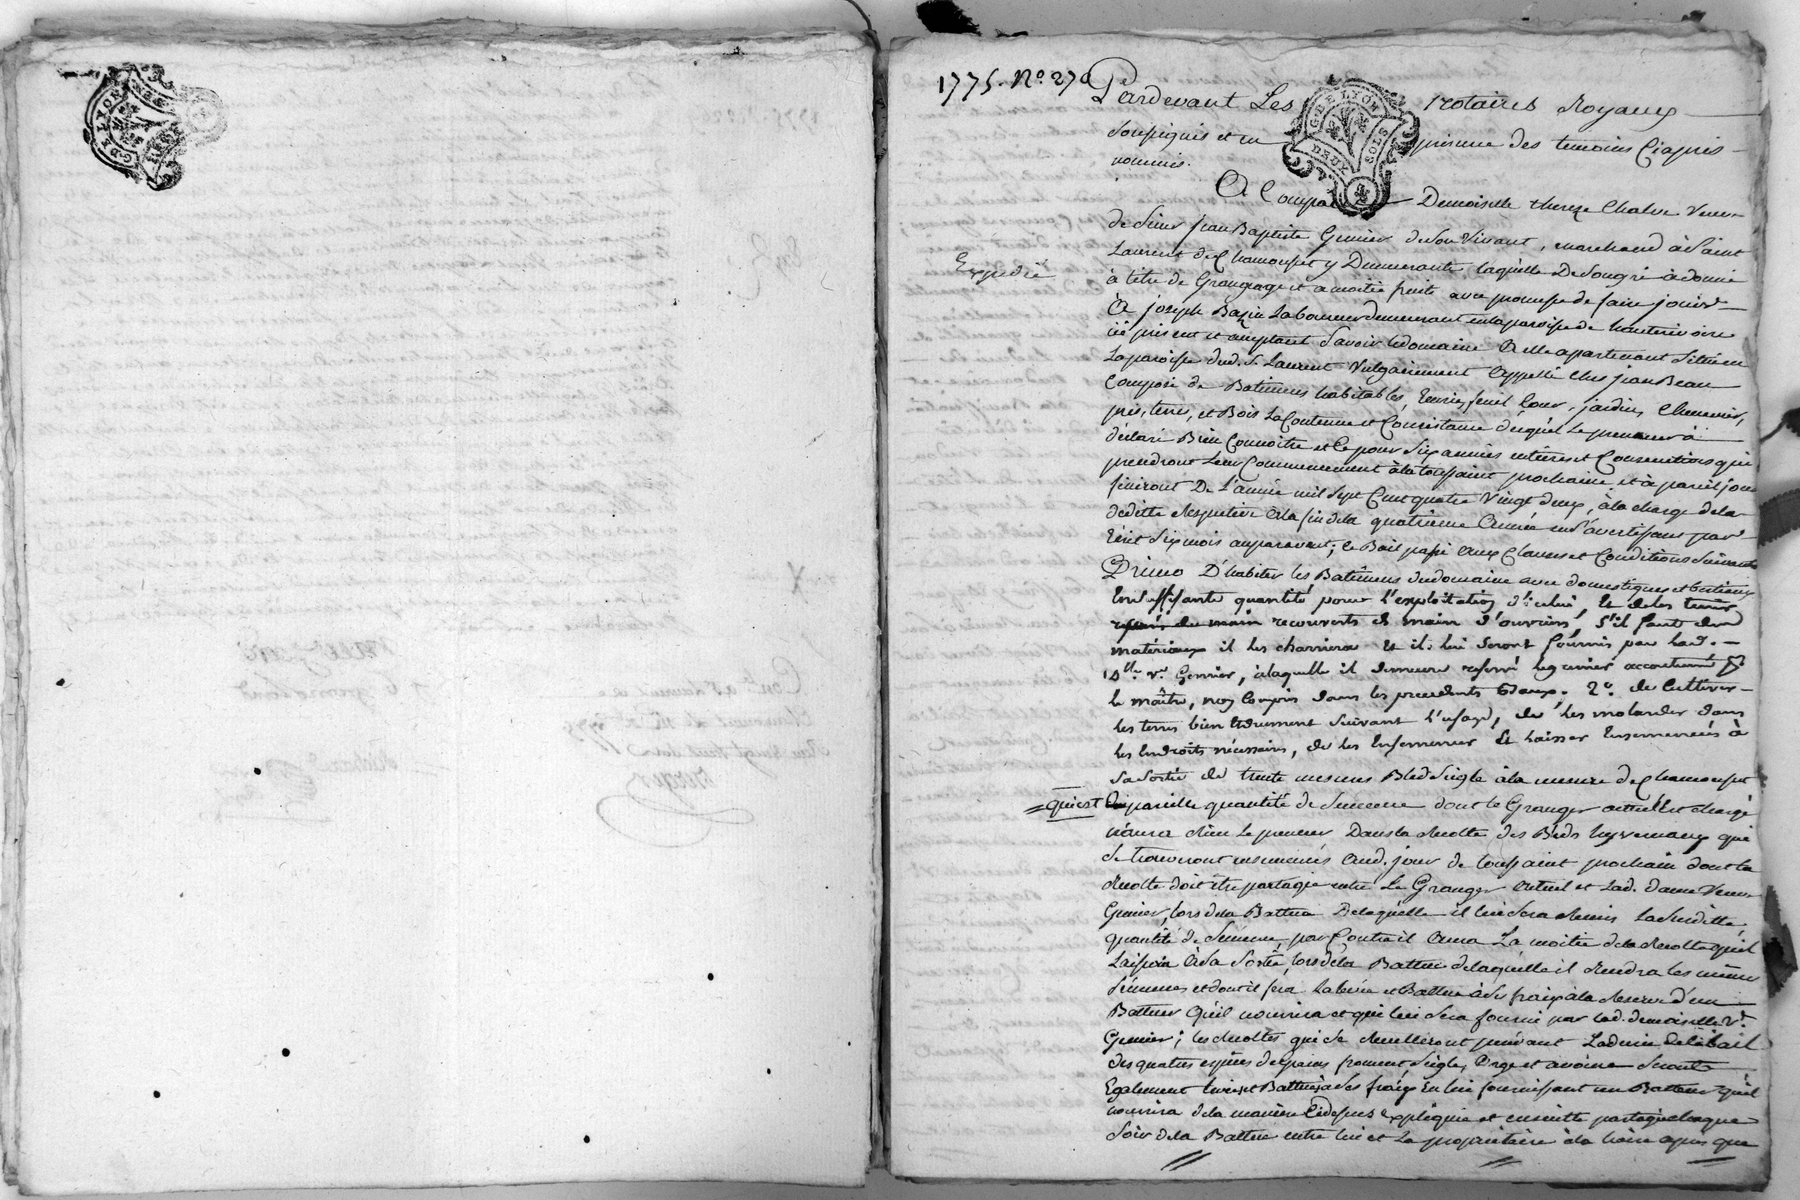 G. DE LYON
1775. No. 270
Pardevant Les notaires Royaux
G. DE LYON
DEUX SOLS
soussignés et en présence des temoins Ciaprès
nommés.
A Comparu Demoiselle thereze Chalve Veuve
de Sieur Jean Baptiste Grenier de son Vivant, marchand à Saint
Laurent de Chamousset y Demeurante laquelle De Son gré a donné
Expedié
à titre de Grangeage et a moitié fruits avec promesse de faire jouir
A joseph Bazin Laboureur demeurant en la paroisse de hauterivoire
icy présent et acceptant Savoir le domaine A elle apartenant Situé en
La paroisse dud. St. Laurent Vulgairement Appellé Chez jean Beau
Composé de Batimens habitables, Ecuries, fenil Cour, jardin, Chenevier,
prés, terres, et Bois La Contenue et Consistance duquel Le preneur à
déclaré Bien Connoitre et Ce pour Six années entieres et Consecutives qui
prendront Leur Commencement à la toussaint prochaine et a pareil jour
finiront De L'année mil Sept Cent quatre Vingt deux, à la charge de la
deditte Respective A la fin de la quatrieme Année en S'avertissant par
Ecrit Six mois auparavant; Ce Bail passé aux Clauses et Conditions Suivantes
Primo D'habiter les Batimens du domaine avec domestiques et bestiaux
En suffisante quantité pour l'exploitation d'icelui, Et de les tenir
recouverts de main d'ouvriers, S'il faut des
matériaux il les charriera Et ils lui seront fournis par lad.
Dlle. ve. Grenier, à laquelle il demeure reservé le grenier accoutumé pr.
le maître, non Compris dans les precedents Baux. 2o. de Cultiver
les terres bien Et dument Suivant l'usage, de les molander dans
les Endroits nécessaires, de les Ensemencer Et laisser Ensemencées à
Sa Sortie de trente mesures Bled Seigle à la mesure de Chamousset
qui est pareille quantité de Semence dont le Granger actuel Est chargé
n'aura Rien Le preneur Dans la Recolte des Bleds hyvernaux qui
Se trouveront ensemencés Aud. jour de toussaint prochain dont la
Recolte doit être partagée entre Le Granger Actuel et Lad. dame Veuve
Grenier, lors de la Battue De laquelle il lui Sera Remis La Susditte
quantité de Semence, par Contre il Aura La moitié de la Recolte qu'il
Laissera A Sa Sortie, lors de la Battue de laquelle il Rendra les mêmes
Semences et dont il fera La levée et Battue à Ses fraix à la Reserve d'un
Batteur Qu'il nourrira et qui lui Sera fourni par lad. demoiselle Ve.
Grenier; les Recoltes qui Se Recuilleront pendant La durée de ce bail
des quatres espèces de grains froment Seigle, Orge et avoine Seront
Egalement levées et Battues à Ses fraix En lui fournissant un Batteur qu'il
nourrira de la maniere Cidessus expliquée et ensuitte partagé chaque
Soir de la Battue entre lui et La proprietaire à la haire après que